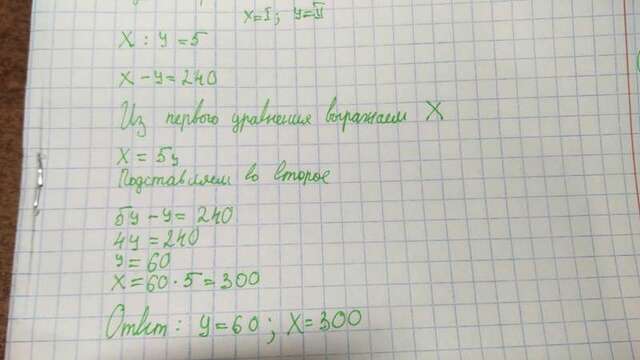 x=I; y=II
X : y = 5
X - y = 240
Из первого уравнения выражаем X
X = 5y
Подставляем во второе
5y - y = 240
4y = 240
y = 60
X = 60 · 5 = 300
Ответ: y = 60; X = 300